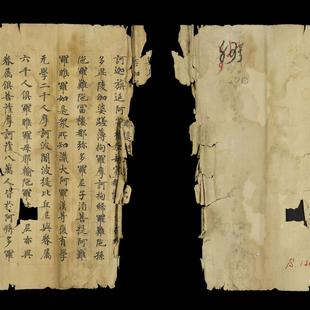 訶迦旃延阿
多畢陵伽婆蹉薄拘羅摩訶拘絺羅難陀孫
陀羅難陀富樓那弥多羅尼子須菩提阿難
羅睺羅如是眾所知識大阿羅漢等復有學
无學二千人摩訶波闍波提比丘尼與眷屬
六千人俱羅睺羅母耶輸陀羅尼亦與
眷屬俱菩薩摩訶薩八萬人皆於阿耨多羅
S.